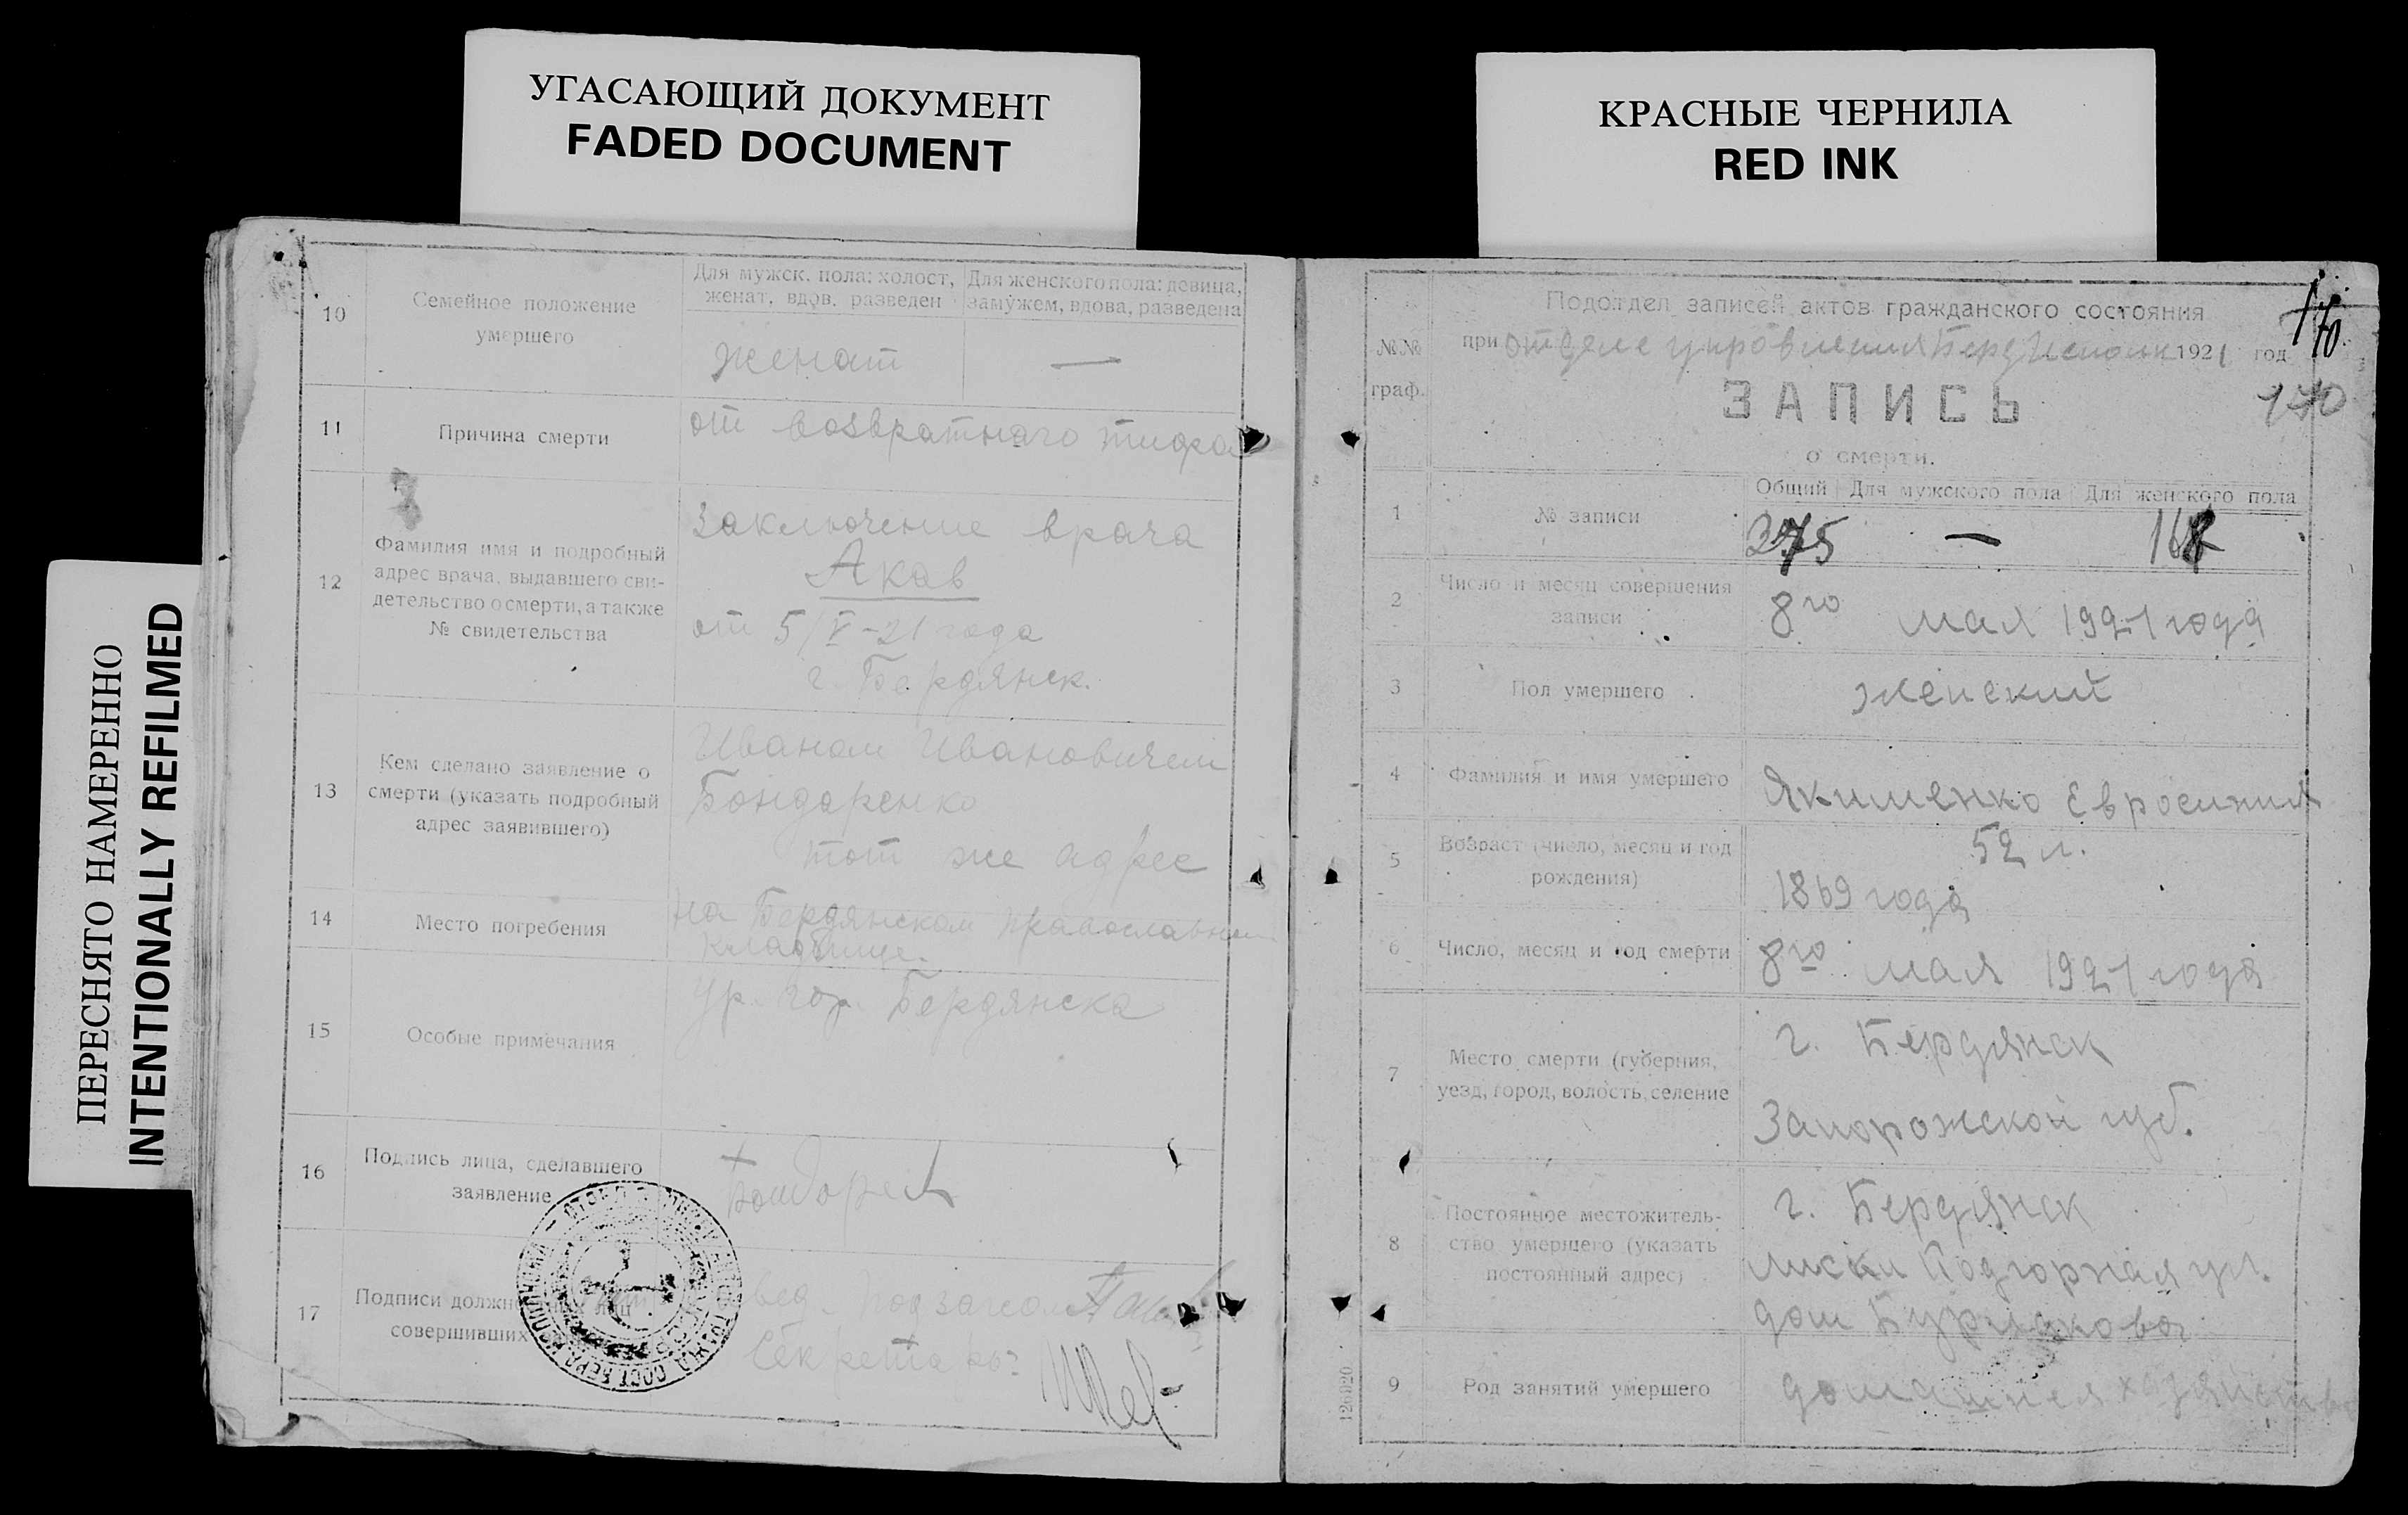 УГАСАЮЩИЙ ДОКУМЕНТ
FADED DOCUMENT
КРАСНЫЕ ЧЕРНИЛА
RED INK
ПЕРЕСНЯТО НАМЕРЕННО
INTENTIONALLY REFILMED
10
Семейное положение
умершего
Для мужск. пола: холост,
женат, вдов. разведен
Для женского пола: девица,
замужем, вдова, разведена
женат
—
11
Причина смерти
от возвратнаго тифа
12
Фамилия имя и подробный
адрес врача, выдавшего сви-
детельство о смерти, а также
№ свидетельства
Заключение врача
Акав
от 5/V-21 года
г. Бердянск.
13
Кем сделано заявление о
смерти (указать подробный
адрес заявившего)
Иваном Ивановичем
Бондаренко
тот же адрес
14
Место погребения
на Бердянском православном
кладбище.
15
Особые примечания
ур. гор. Бердянска
16
Подпись лица, сделавшего
заявление
17
Подписи должностных лиц
совершивших
Секретарь
Подотдел записей актов гражданского состояния
при отделе управления 1921 год
170
№№
граф.
ЗАПИСЬ
170
о смерти.
1
№ записи
Общий
Для мужского пола
Для женского пола
375
—
168
2
Число и месяц совершения
записи
8го мая 1921 года
3
Пол умершего
женский
4
Фамилия и имя умершего
Якименко Евросиния
5
Возраст (число, месяц и год
рождения)
52 л.
1869 года
6
Число, месяц и год смерти
8го мая 1921 года
7
Место смерти (губерния,
уезд, город, волость, селение
г. Бердянск
Запорожской губ.
8
Постоянное местожитель-
ство умершего (указать
постоянный адрес)
г. Бердянск
лиски Подгорная ул.
дом Бурлакова
9
Род занятий умершего
домашнея хозяйство
126020